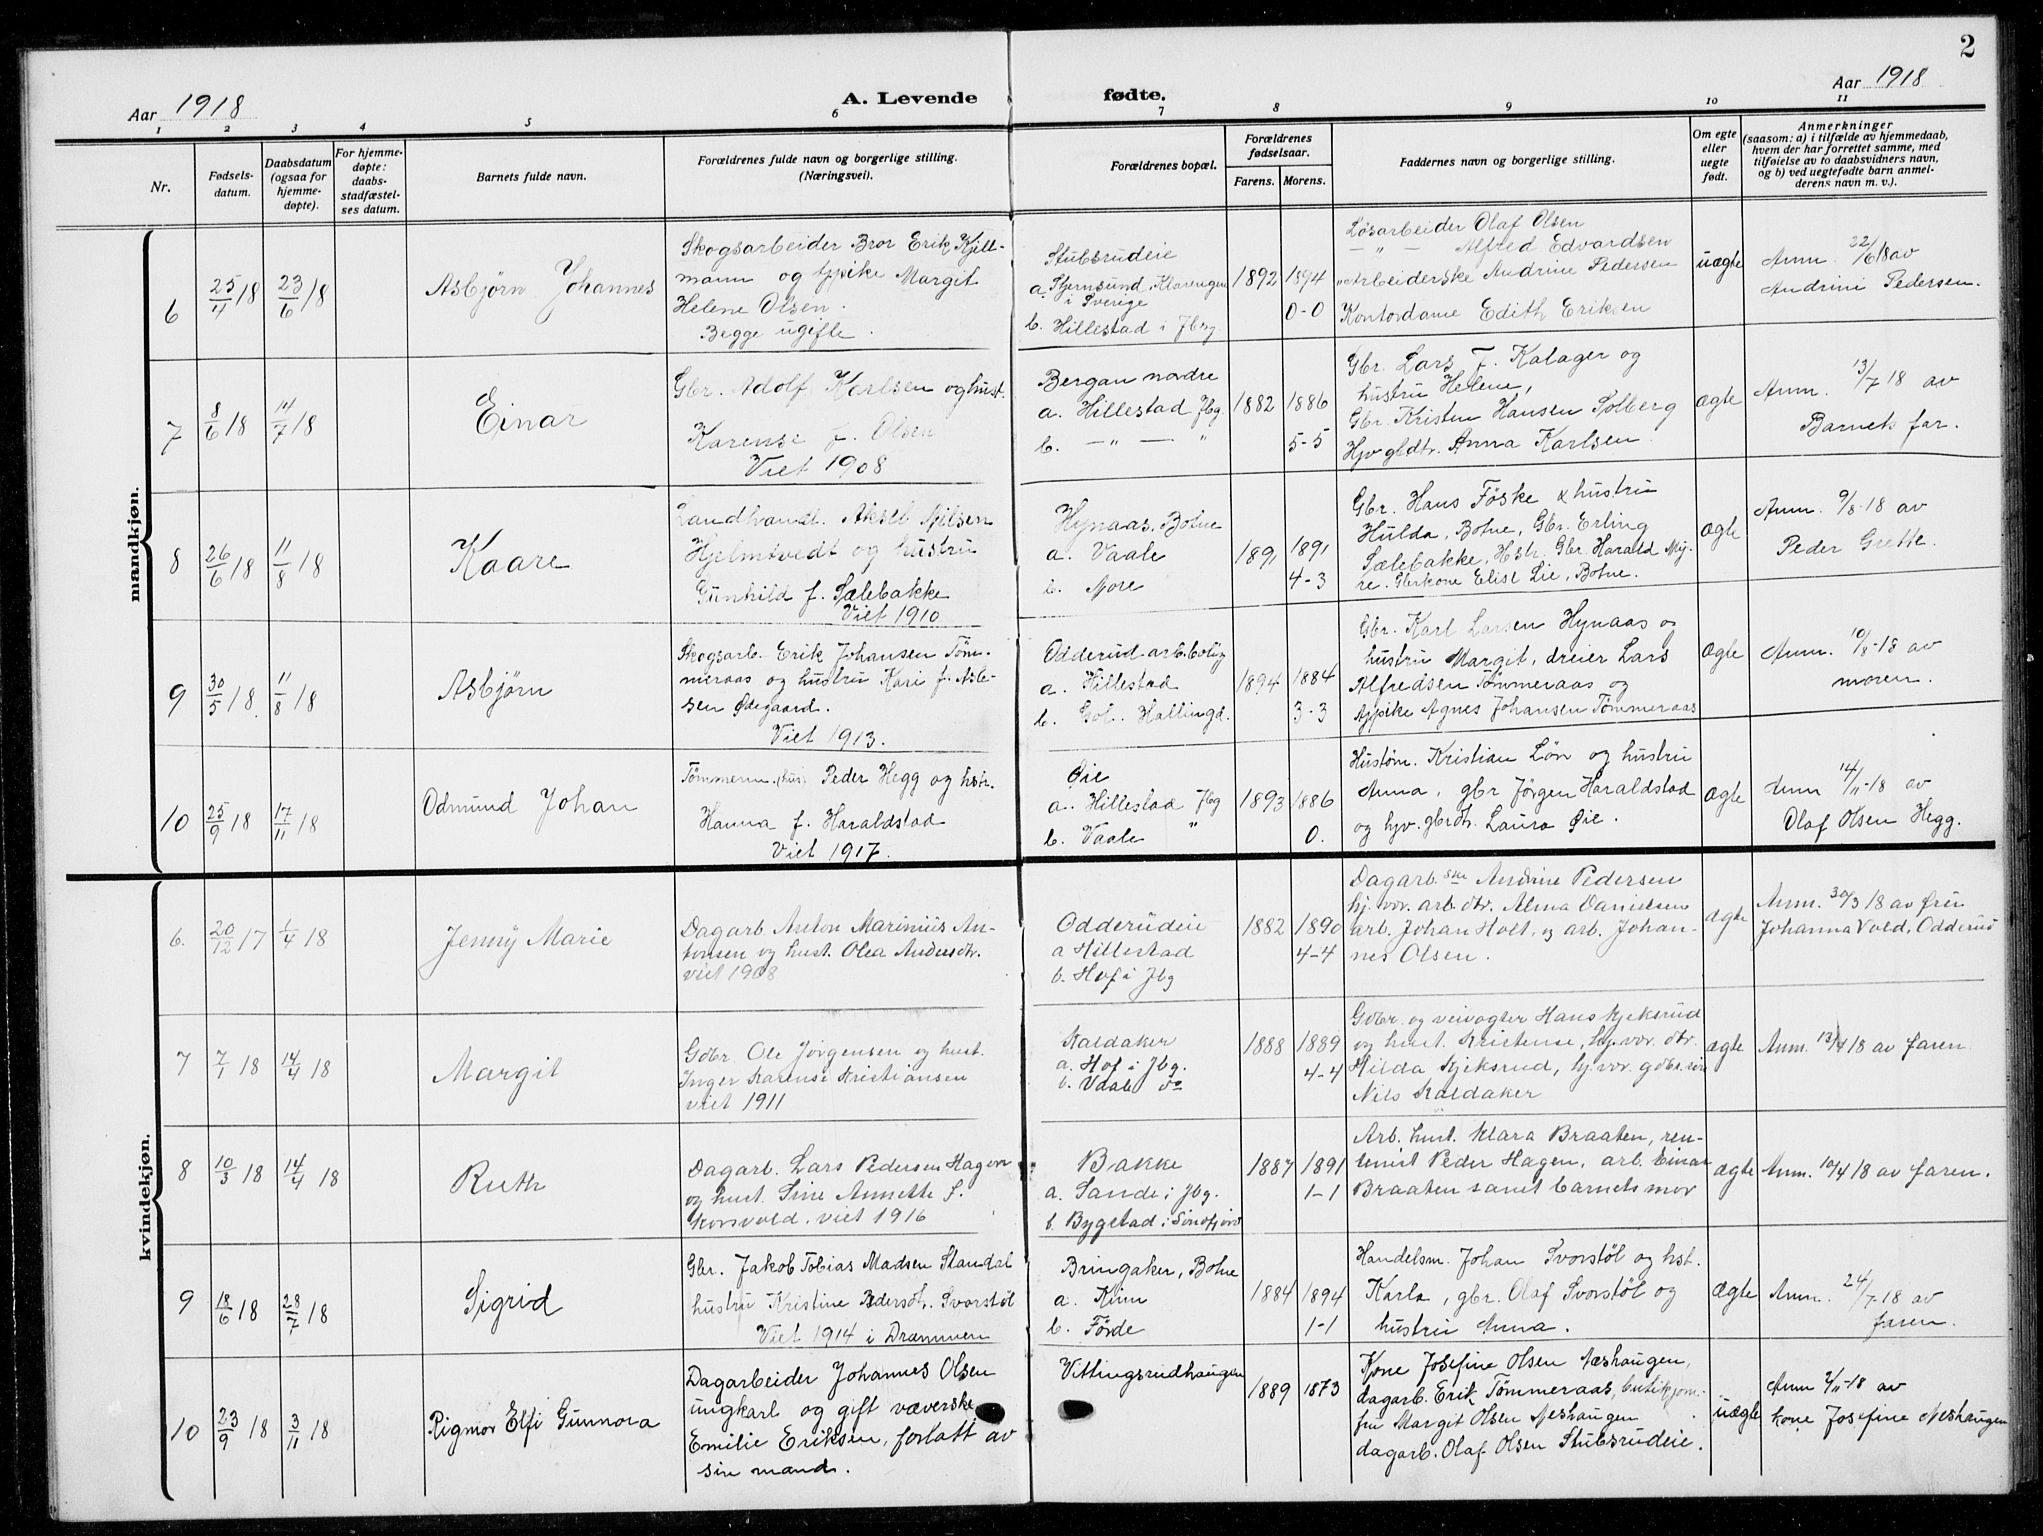 2
Aar 1918
A. Levende
fødte.
Aar 1918
1 2 3 4 5 6 7 8 9 10 11
Nr.
Fødsels-
datum.
Daabsdatum
(ogsaa for
hjemme-
døpte).
For hjemme-
døpte:
daabs-
stadfæstel-
ses datum.
Barnets fulde navn.
Forældrenes fulde navn og borgerlige stilling.
(Næringsvei).
Forældrenes bopæl.
Forældrenes
fødselsaar.
Farens. Morens.
Faddernes navn og borgerlige stilling.
Om egte
eller
uegte
født.
Anmerkninger
(saasom: a) i tilfælde av hjemmedaab,
hvem der har forrettet samme, med
tilføielse av to daabsvidners navn,
og b) ved uegtefødte barn anmel-
derens navn m. v.).
mandkjøn.
6
25/4 18
23/6 18
Asbjørn Johannes
Skogsarbeider Bror Erik Kjell-
mann og tjpike Margit
Helene Olsen.
Begge ugifte.
Stubsrudeie
a. Stjernsund, Klarengen
i Sverige
b. Hillestad i Jbg
1892
1894
0-0
Løsarbeider Olaf Olsen
— " — Alfred Edvardsen
Arbeiderske Andrine Pedersen
Kontordame Edith Eriksen
uægte
Anm. 22/6 18 av
Andrini Pedersen.
7
8/6 18
14/7 18
Einar
Gbr. Adolf Karlsen og hust.
Karense f. Olsen
Viet 1908
Bergan nordre
a. Hillestad Jbg
b. — " — "
1882
1886
5-5
Gbr. Lars F. Kalager og
hustru Helene,
Gbr. Kristen Hansen Solberg
Hjv gbdtr. Anna Karlsen
ægte
Anm. 13/7 18 av
Barnets far.
8
26/6 18
11/8 18
Kaare
Landhandl. Aksel Nilsen
Hjelmtvedt og hustru
Gunhild f. Sælebakke
Viet 1910
Hynaas, Botne
a. Vaale
b. Nore
1891
1891
4-3
Gbr. Hans Føske & hustru
Hulda, Botne, Gbr. Erling
Sælebakke, Hstr. Gbr. Harald My-
re. Gbrkone Elise Lie, Botne.
ægte
Anm. 9/8-18 av
Peder Grette.
9
30/5 18.
11/8 18
Asbjørn
Skogsarb. Erik Johansen Tøm-
meraas og hustru Kari f. Asle-
sen Ødegaard.
Viet 1913.
Odderud arb.bolig
a. Hillestad
b. Gol. Hallingd.
1894
1884
3-3
Gbr. Karl Larsen Hynaas og
hustru Margit, dreier Lars
Alfredsen Tømmeraas og
tjpike Agnes Johansen Tømmeraas
Ægte
Anm. 10/8-18 av
moren.
10
25/9 18
17/11 18
Odmund Johan
Tømmerm. (hus) Peder Hegg og hstr.
Hanna f. Haraldstad
Viet 1917.
Øie
a. Hillestad Jbg
b. Vaale "
1893
1886
0.
Hustøm. Kristian Løn og hustru
Anna, gbr Jørgen Haraldstad
og hjv. gbrdtr. Laura Øie.
ægte
Anm 14/11-18 av
Olaf Olsen Hegg.
kvindekjøn.
6.
20/12 17
1/4 18
Jenny Marie
Dagarb Anton Marinius An-
tonsen og hust. Olea Andersdtr.
viet 1908
Odderudeie
a Hillestad
b. Hof i Jbg
1882
1890
4-4
Dagarb.ske Andrine Pedersen
hj. vor. arb. dtr. Alma Danielsen
arb. Johan Holt, og arb. Johan-
nes Olsen.
ægte
Anm. 30/3 18 av fru
Johanna Vold, Odderud
7
7/1 18
14/4 18
Margit
Gdbr. Ole Jørgensen og hust.
Inger Karense Kristiansen
viet 1911
Kaldaker
a. Hof i Jbg.
b. Vaale do
1888
1889
4-4
Gdbr. og veivogter Hans Kjeksrud
og hust. Kristense, hj. vor. dtr.
Hilda Kjeksrud, hj. vor. gdbr. søn
Nils Kaldaker
ægte
Anm. 13/4 18 av faren
8
10/3 18
14/4 18
Ruth
Dagarb. Lars Pedersen Hagen
og hust. Sine Annette f.
Korsvold. viet 1916
Bakke
a. Sande i Jbg.
b. Bygstad i Søndfjord
1887
1891
1-1
Arb. hust. Klara Braaten, ren-
tenist Peder Hagen, arb. Einar
Braaten samt barnets mor
ægte
Anm. 10/4 18 av faren.
9
18/6 18
28/7 18
Sigrid
Gbr. Jakob Tobias Madsen Standal
hustru Kristine Pedersdt. Svorstøl
Viet 1914 i Drammen
Bringaker, Botne
a. Kirn
b. Førde
1884
1894
1-1
Handelsm. Johan Svorstøl og hst.
Karla, gbr. Olaf Svorstøl og
hustru Anna.
Ægte
Anm. 24/7-18 av
faren.
10
23/9 18
3/11 18
Rigmor Elfi Gunnora
Dagarbeider Johannes Olsen
ungkarl og gift væverske
Emilie Eriksen, forlatt av
sin mand.
Vittingsrudhaugen
1889
1873
Kone Josefine Olsen Næshaugen,
dagarb. Erik Tømmeraas, butikjom-
fru Margit Olsen Neshaugen
dagarb. Olaf Olsen Stubsrudeie.
uægte
Anm 2/11-18 av
kone Josefine Neshaugen